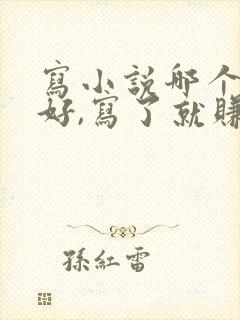 寫小説哪个
好,寫了就賺
孫紅雷